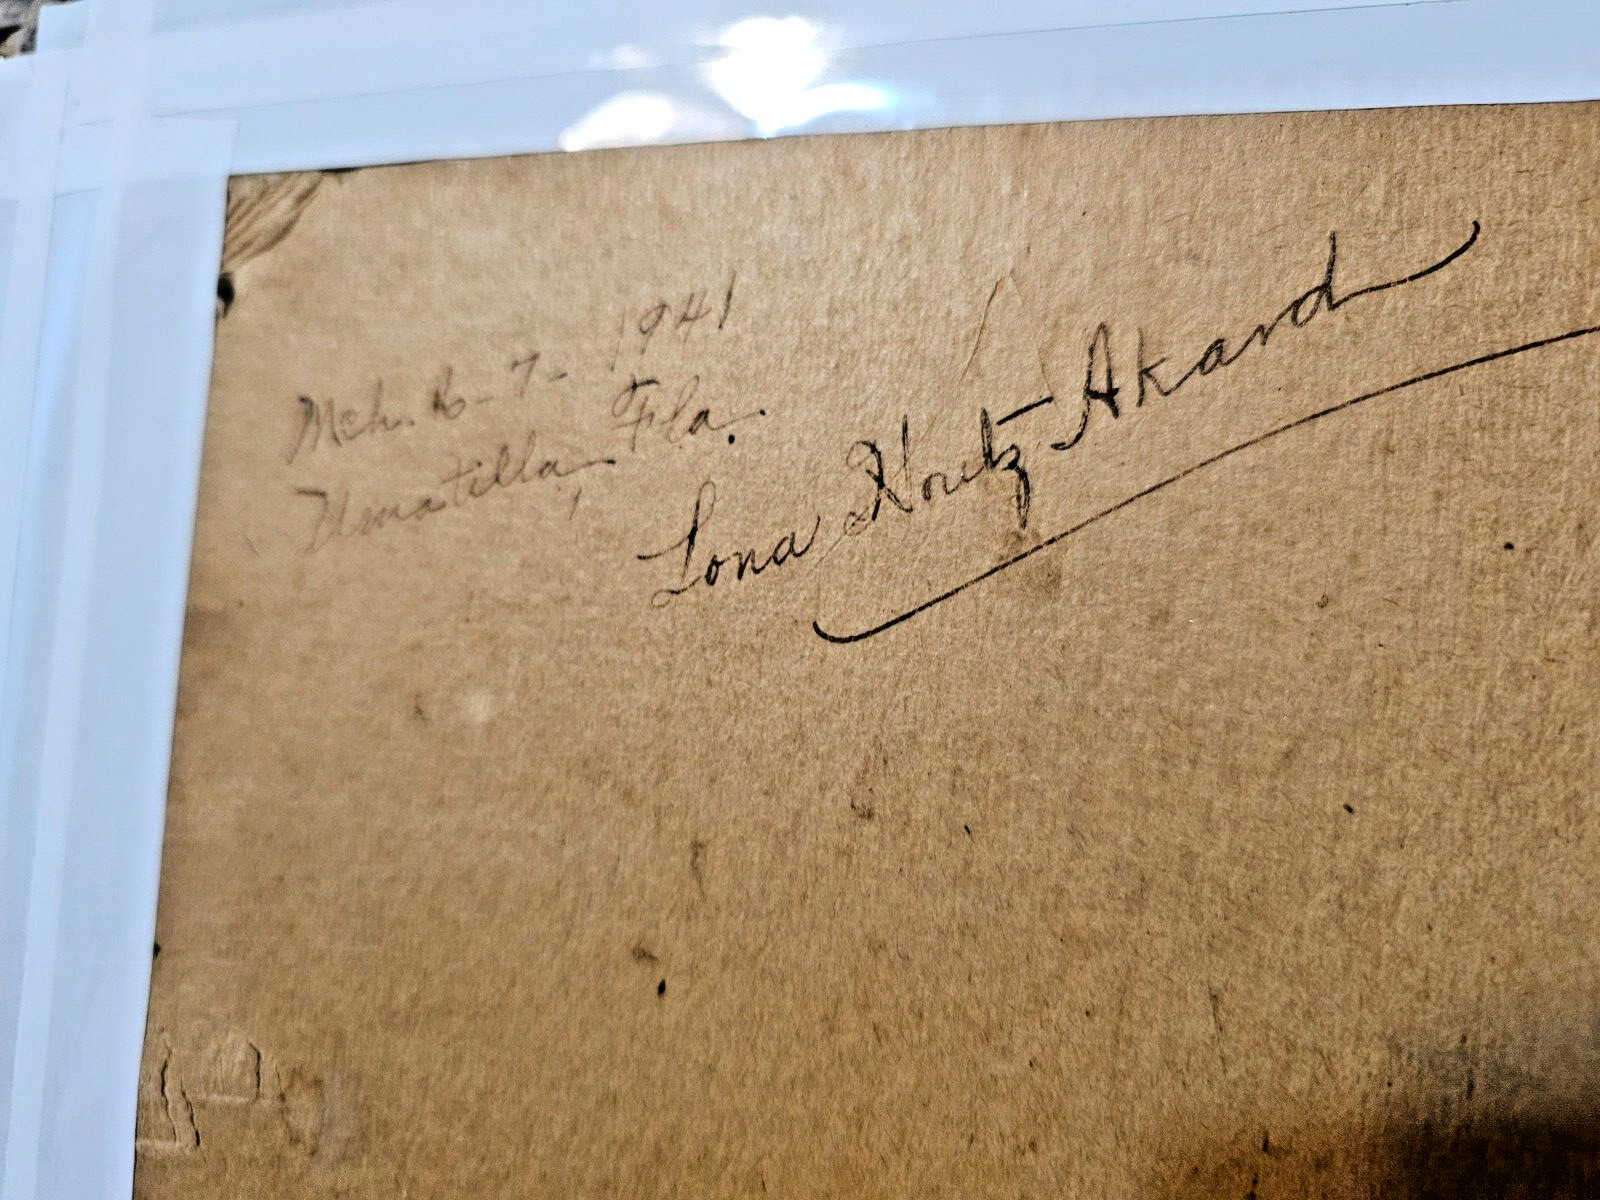 Mch. 6-7-1941
Umatilla, Fla.
Lona Houtz Akard